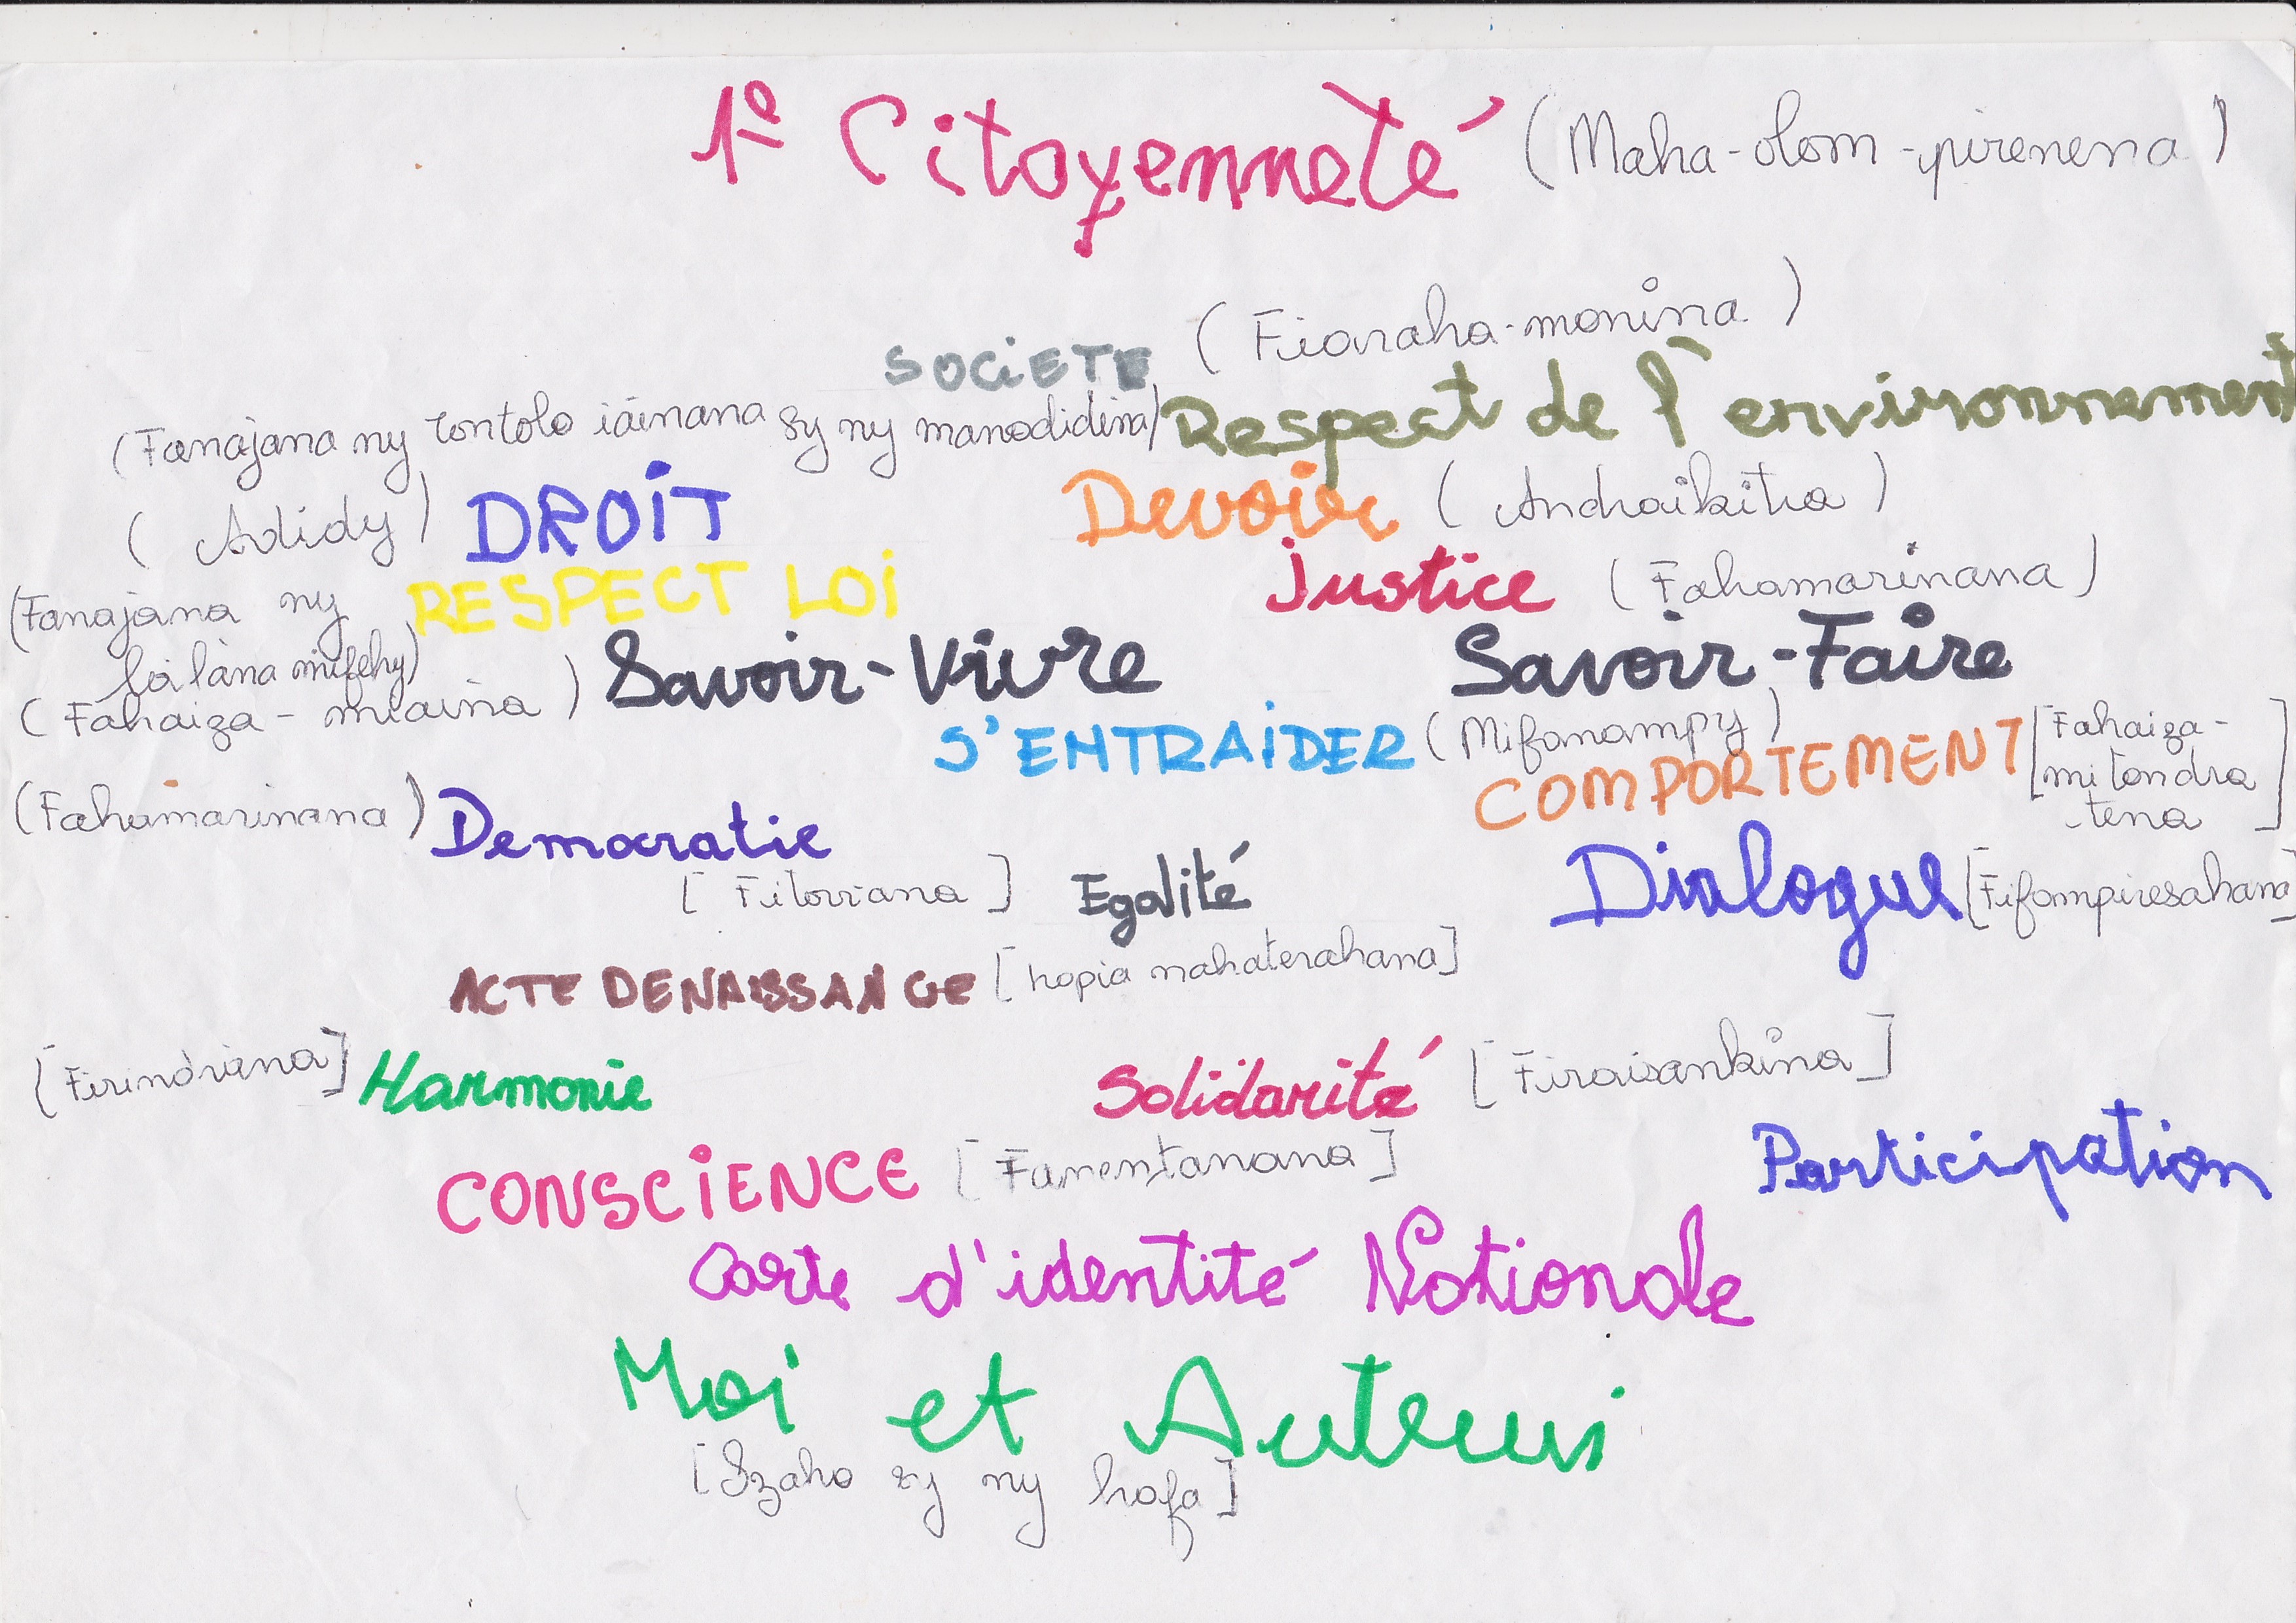 1º Citoyenneté (Maha-olom-pirenena)
SOCIETE (Fiaraha-monina)
(Fanajana ny tontolo iainana sy ny manodidina) Respect de l'environnement
(Adidy) DROIT Devoir (Andraikitra)
(Fanajana ny lalàna mifehy) RESPECT LOI Justice (Fahamarinana)
(Fahaiza-miaina) Savoir-Vivre Savoir-Faire
S'ENTRAIDER (Mifanampy) COMPORTEMENT [Fahaiza-mitondra-tena]
(Fahamarinana) Democratie
[Fitoviana] Egalité Dialogue [Fifampiresahana]
ACTE DE NAISSANCE [kopia nahaterahana]
[Firindriana] Harmonie Solidarité [Firaisankina]
CONSCIENCE [Famentanana] Participation
Carte d'identité Nationale
Moi et Autrui
[Izaho sy ny hafa]